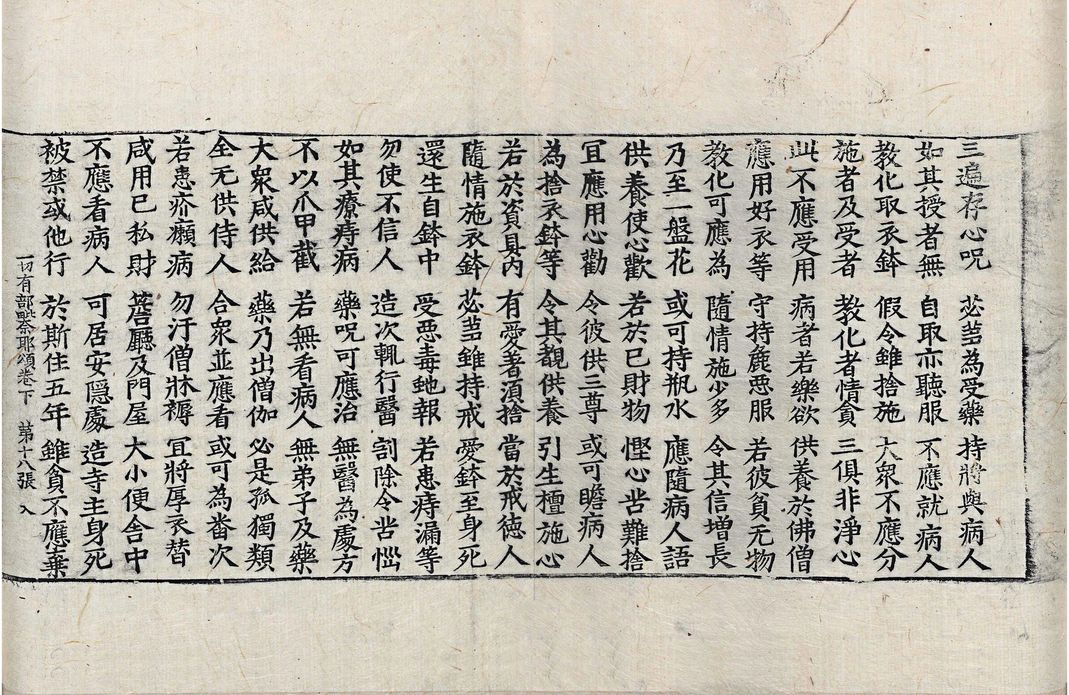 三遍存心呪　苾芻為受藥　持將與病人
如其授者無　自取亦聽服　不應就病人
教化取衣鉢　假令雖捨施　大衆不應分
施者及受者　教化者情貪　三俱非淨心
此不應受用　病者若樂欲　供養於佛僧
應用好衣等　守持麁惡服　若彼貧无物
教化可應為　隨情施少多　令其信增長
乃至一盤花　或可持瓶水　應隨病人語
供養使心歡　若於己財物　慳心苦難捨
冝應用心勸　令彼供三尊　或可瞻病人
為捨衣鉢等　令其覩供養　引生檀施心
若於資具內　有愛著須捨　當於戒德人
隨情施衣鉢　苾芻雖持戒　愛鉢至身死
還生自鉢中　受惡毒虵報　若患痔漏等
勿使不信人　造次輒行醫　割除令苦惱
如其療痔病　藥呪可應治　無醫為處方
不以爪甲截　若無看病人　無弟子及藥
大衆咸供給　藥乃出僧伽　必是孤獨類
全无供侍人　合衆並應看　或可為番次
若患疥癩病　勿汙僧牀褥　冝將厚衣替
咸用己私財　簷廳及門屋　大小便舍中
不應看病人　可居安隱處　造寺主身死
被禁或他行　於斯住五年　雖貧不應棄
一切有部毗奈耶頌卷下　第十八張　入